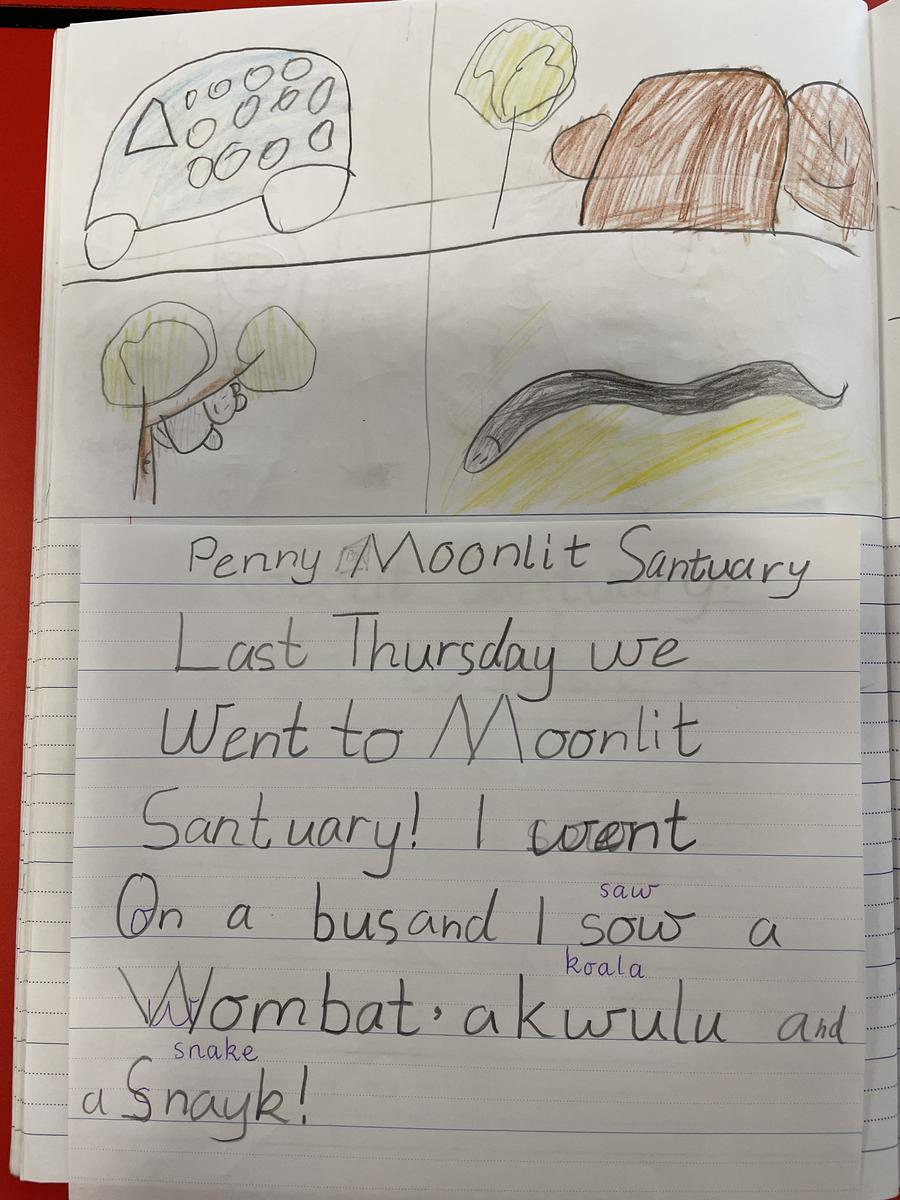 Penny Moonlit Santuary
Last Thursday we
Went to Moonlit
Santuary! I went
saw
On a bus and I sow a
koala
Wombat, a kwulu and
snake
a Snayk!